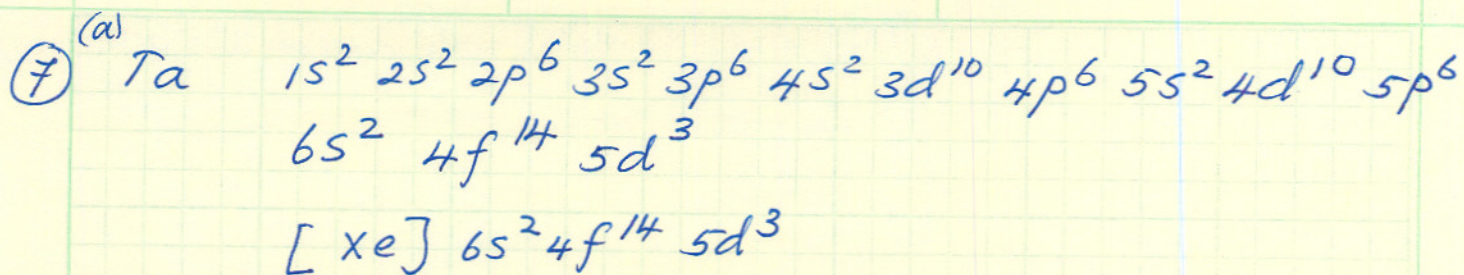 (a)
⑦ Ta 1s² 2s² 2p⁶ 3s² 3p⁶ 4s² 3d¹⁰ 4p⁶ 5s² 4d¹⁰ 5p⁶
6s² 4f¹⁴ 5d³
[Xe] 6s² 4f¹⁴ 5d³